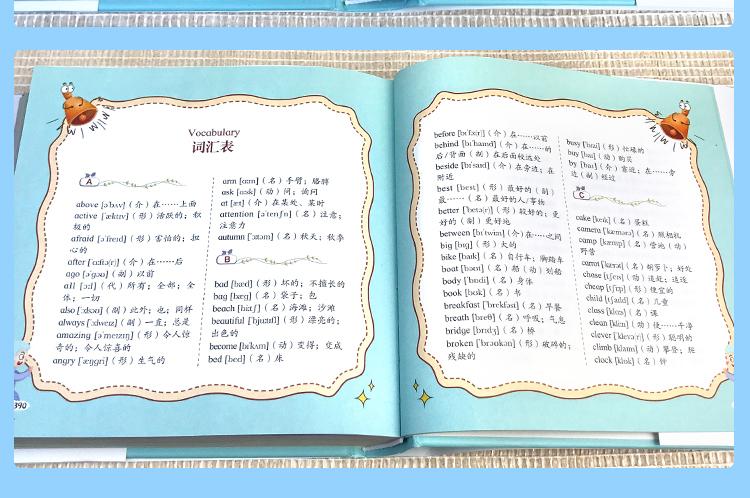 Vocabulary
词汇表
A
above [ə'bʌv]（介）在……上面
active ['æktɪv]（形）活跃的；积
极的
afraid [ə'freɪd]（形）害怕的；担
心的
after ['ɑːftə(r)]（介）在……后
ago [ə'gəʊ]（副）以前
all [ɔːl]（代）所有；全部；全
体；一切
also ['ɔːlsəʊ]（副）此外；也；同样
always ['ɔːlweɪz]（副）一直；总是
amazing [ə'meɪzɪŋ]（形）令人惊
奇的；令人惊喜的
angry ['æŋgri]（形）生气的
390
arm [ɑːm]（名）手臂；胳膊
ask [ɑːsk]（动）问；询问
at [æt]（介）在某处、某时
attention [ə'tenʃn]（名）注意；
注意力
autumn ['ɔːtəm]（名）秋天；秋季
B
bad [bæd]（形）坏的；不擅长的
bag [bæg]（名）袋子；包
beach [biːtʃ]（名）海滩；沙滩
beautiful ['bjuːtɪfl]（形）漂亮的；
出色的
become [bɪ'kʌm]（动）变得；变成
bed [bed]（名）床
before [bɪ'fɔː(r)]（介）在……以前
behind [bɪ'haɪnd]（介）在……的
后/背面（副）在后面较远处
beside [bɪ'saɪd]（介）在旁边；在
附近
best [best]（形）最好的（副）
最……（名）最好的人/事物
better ['betə(r)]（形）较好的；更
好的（副）更好地
between [bɪ'twiːn]（介）在…之间
big [bɪg]（形）大的
bike [baɪk]（名）自行车；脚踏车
boat [bəʊt]（名）船（动）划船
body ['bɒdi]（名）身体
book [bʊk]（名）书
breakfast ['brekfəst]（名）早餐
breath [breθ]（名）呼吸；气息
bridge [brɪdʒ]（名）桥
broken ['brəʊkən]（形）破碎的；
残缺的
busy ['bɪzi]（形）忙碌的
buy [baɪ]（动）购买
by [baɪ]（介）靠近；在……旁
边（副）经过
C
cake [keɪk]（名）蛋糕
camera ['kæmərə]（名）照相机
camp [kæmp]（名）营地（动）
野营
carrot ['kærət]（名）胡萝卜；好处
chase [tʃeɪs]（动）追赶；追逐
cheap [tʃiːp]（形）便宜的
child [tʃaɪld]（名）儿童
class [klɑːs]（名）课
clean [kliːn]（动）使……干净
clever ['klevə(r)]（形）聪明的
climb [klaɪm]（动）攀登；爬
clock [klɒk]（名）钟